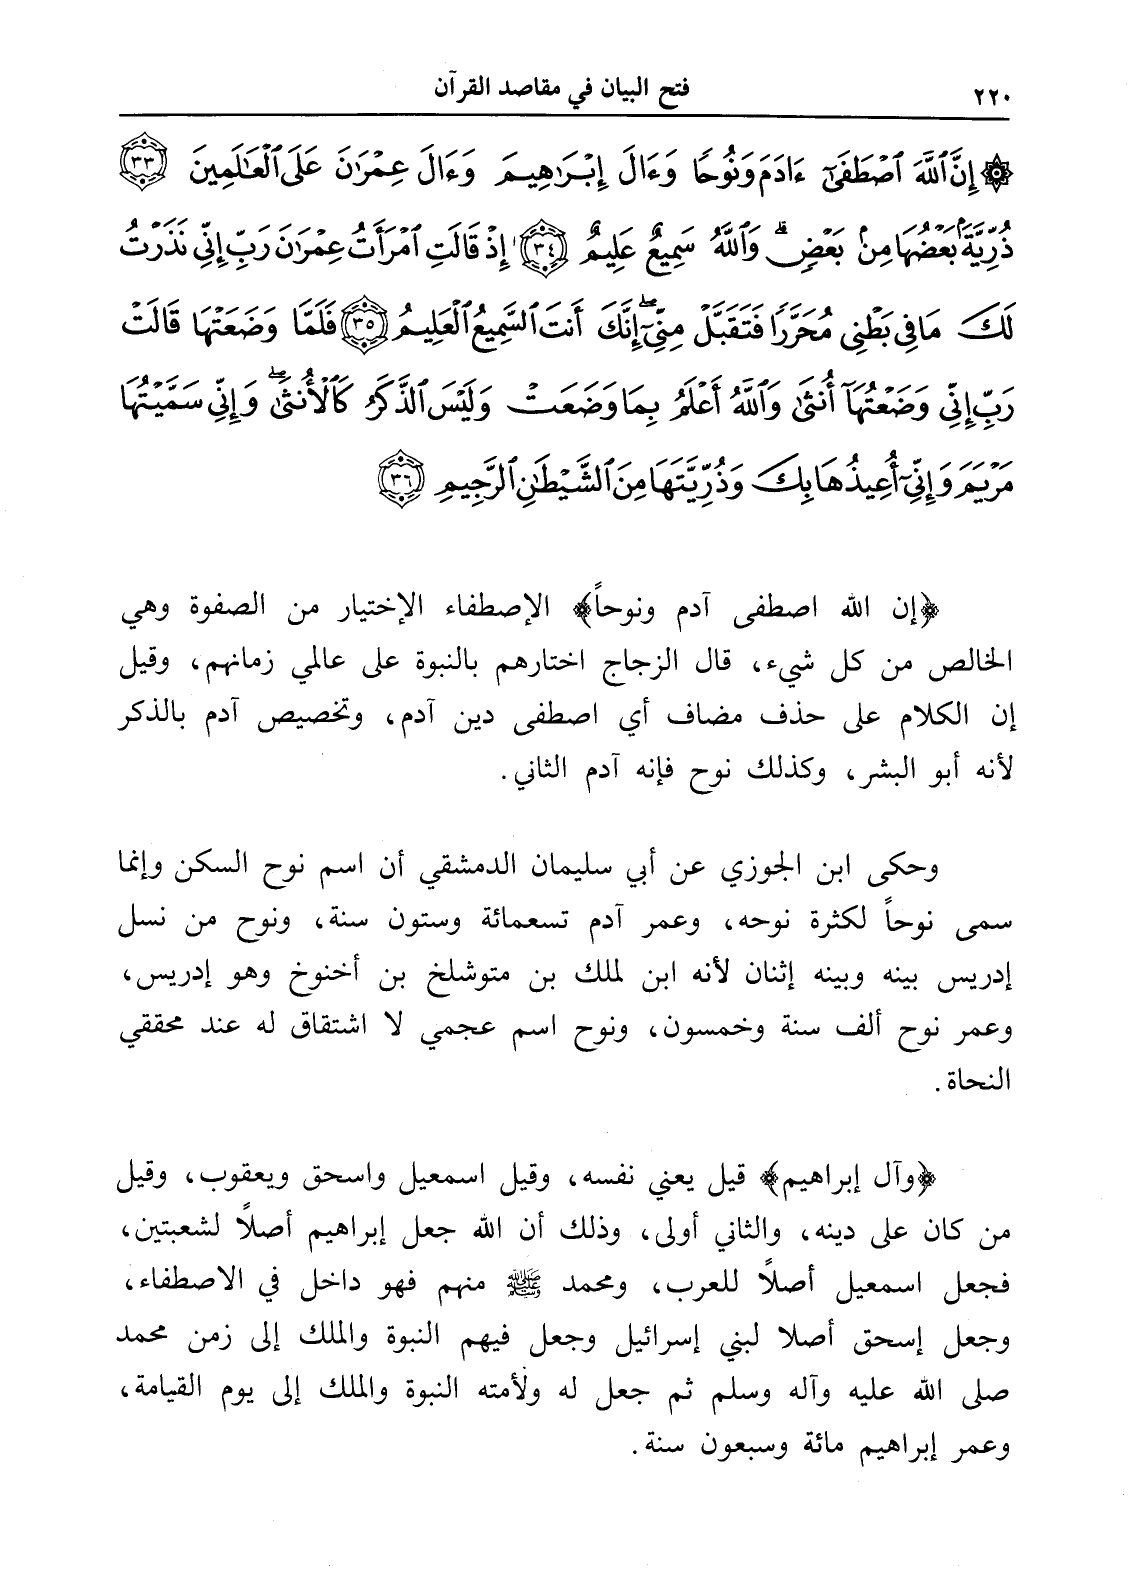 ٢٢٠ فتح البيان في مقاصد القرآن
۞ إِنَّ ٱللَّهَ ٱصۡطَفَىٰٓ ءَادَمَ وَنُوحٗا وَءَالَ إِبۡرَٰهِيمَ وَءَالَ عِمۡرَٰنَ عَلَى ٱلۡعَٰلَمِينَ ٣٣
ذُرِّيَّةَۢ بَعۡضُهَا مِنۢ بَعۡضٖۗ وَٱللَّهُ سَمِيعٌ عَلِيمٌ ٣٤ إِذۡ قَالَتِ ٱمۡرَأَتُ عِمۡرَٰنَ رَبِّ إِنِّي نَذَرۡتُ
لَكَ مَا فِي بَطۡنِي مُحَرَّرٗا فَتَقَبَّلۡ مِنِّيٓۖ إِنَّكَ أَنتَ ٱلسَّمِيعُ ٱلۡعَلِيمُ ٣٥ فَلَمَّا وَضَعَتۡهَا قَالَتۡ
رَبِّ إِنِّي وَضَعۡتُهَآ أُنثَىٰ وَٱللَّهُ أَعۡلَمُ بِمَا وَضَعَتۡ وَلَيۡسَ ٱلذَّكَرُ كَٱلۡأُنثَىٰۖ وَإِنِّي سَمَّيۡتُهَا
مَرۡيَمَ وَإِنِّيٓ أُعِيذُهَا بِكَ وَذُرِّيَّتَهَا مِنَ ٱلشَّيۡطَٰنِ ٱلرَّجِيمِ ٣٦
﴿إن الله اصطفى آدم ونوحاً﴾ الإصطفاء الإختيار من الصفوة وهي
الخالص من كل شيء، قال الزجاج اختارهم بالنبوة على عالمي زمانهم، وقيل
إن الكلام على حذف مضاف أي اصطفى دين آدم، وتخصيص آدم بالذكر
لأنه أبو البشر، وكذلك نوح فإنه آدم الثاني.
وحكى ابن الجوزي عن أبي سليمان الدمشقي أن اسم نوح السكن وإنما
سمى نوحاً لكثرة نوحه، وعمر آدم تسعمائة وستون سنة، ونوح من نسل
إدريس بينه وبينه إثنان لأنه ابن لملك بن متوشلخ بن أخنوخ وهو إدريس،
وعمر نوح ألف سنة وخمسون، ونوح اسم عجمي لا اشتقاق له عند محققي
النحاة.
﴿وآل إبراهيم﴾ قيل يعني نفسه، وقيل اسمعيل واسحق ويعقوب، وقيل
من كان على دينه، والثاني أولى، وذلك أن الله جعل إبراهيم أصلاً لشعبتين،
فجعل اسمعيل أصلاً للعرب، ومحمد ﷺ منهم فهو داخل في الاصطفاء،
وجعل إسحق أصلا لبني إسرائيل وجعل فيهم النبوة والملك إلى زمن محمد
صلى الله عليه وآله وسلم ثم جعل له ولأمته النبوة والملك إلى يوم القيامة،
وعمر إبراهيم مائة وسبعون سنة.